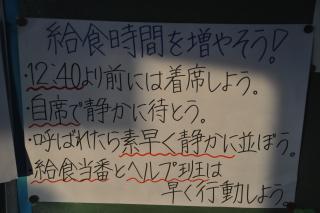 給食時間を増やそう!
・12:40より前には着席しよう。
・自席で静かに待とう。
・呼ばれたら素早く静かに並ぼう。
・給食当番とヘルプ班は
早く行動しよう